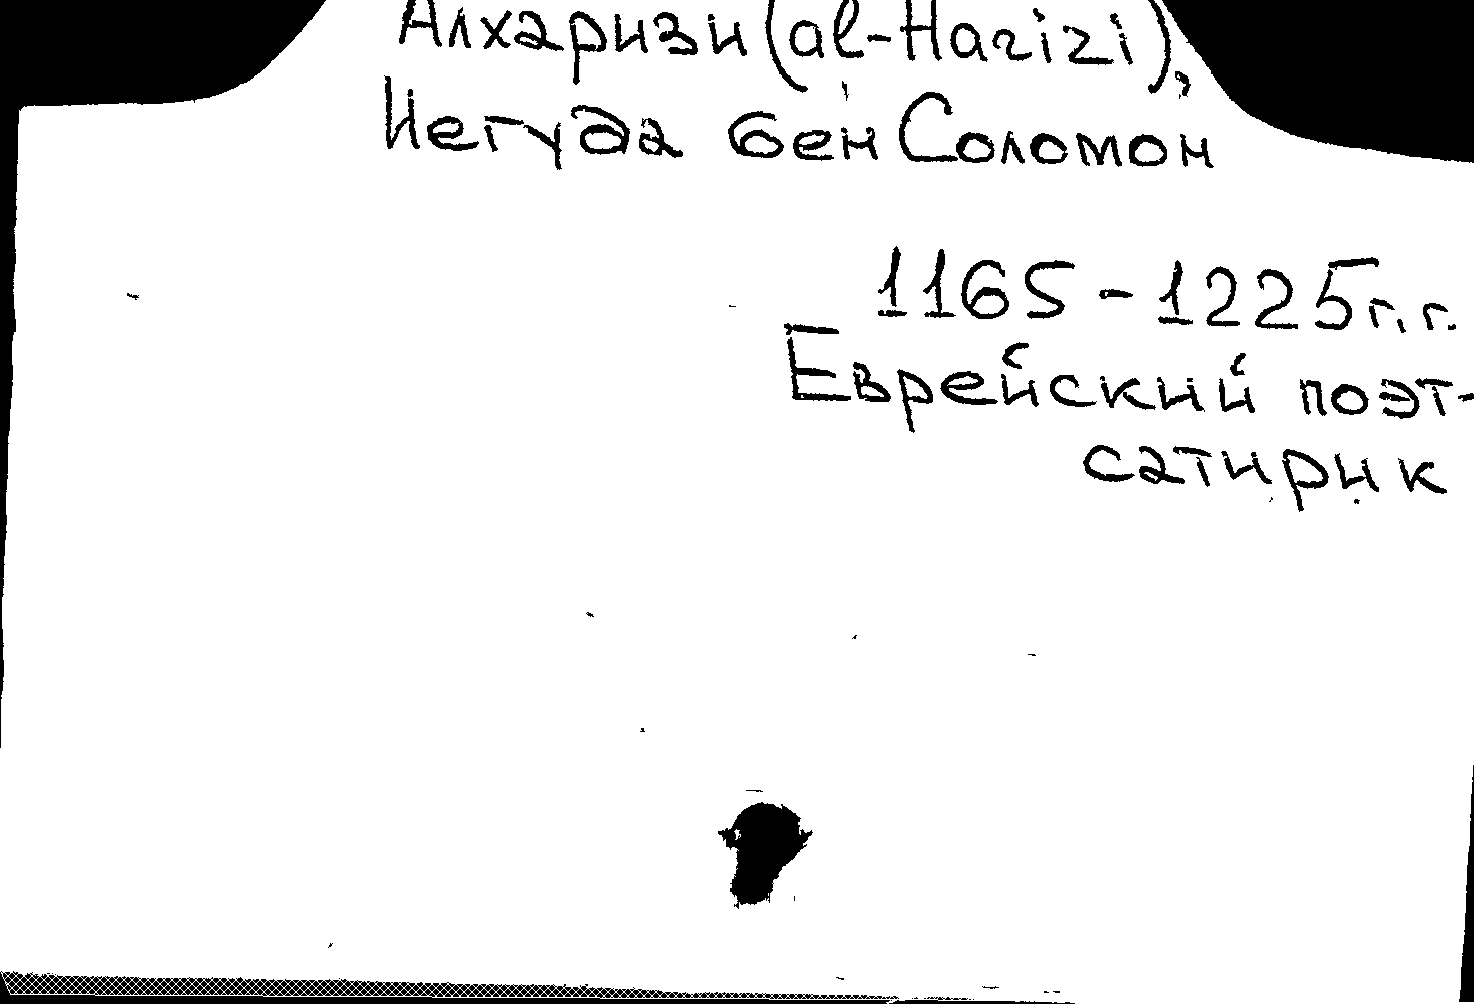 Алхаризи (al-Harizi),
Иегуда бен Соломон
1165-1225 г.г.
Еврейский поэт-
сатирик